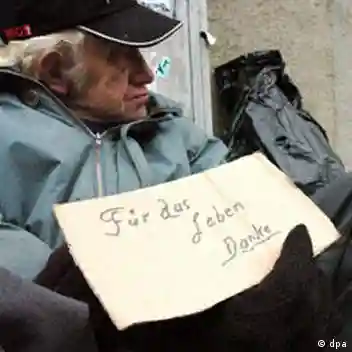 Für das
Leben
Danke
dpa